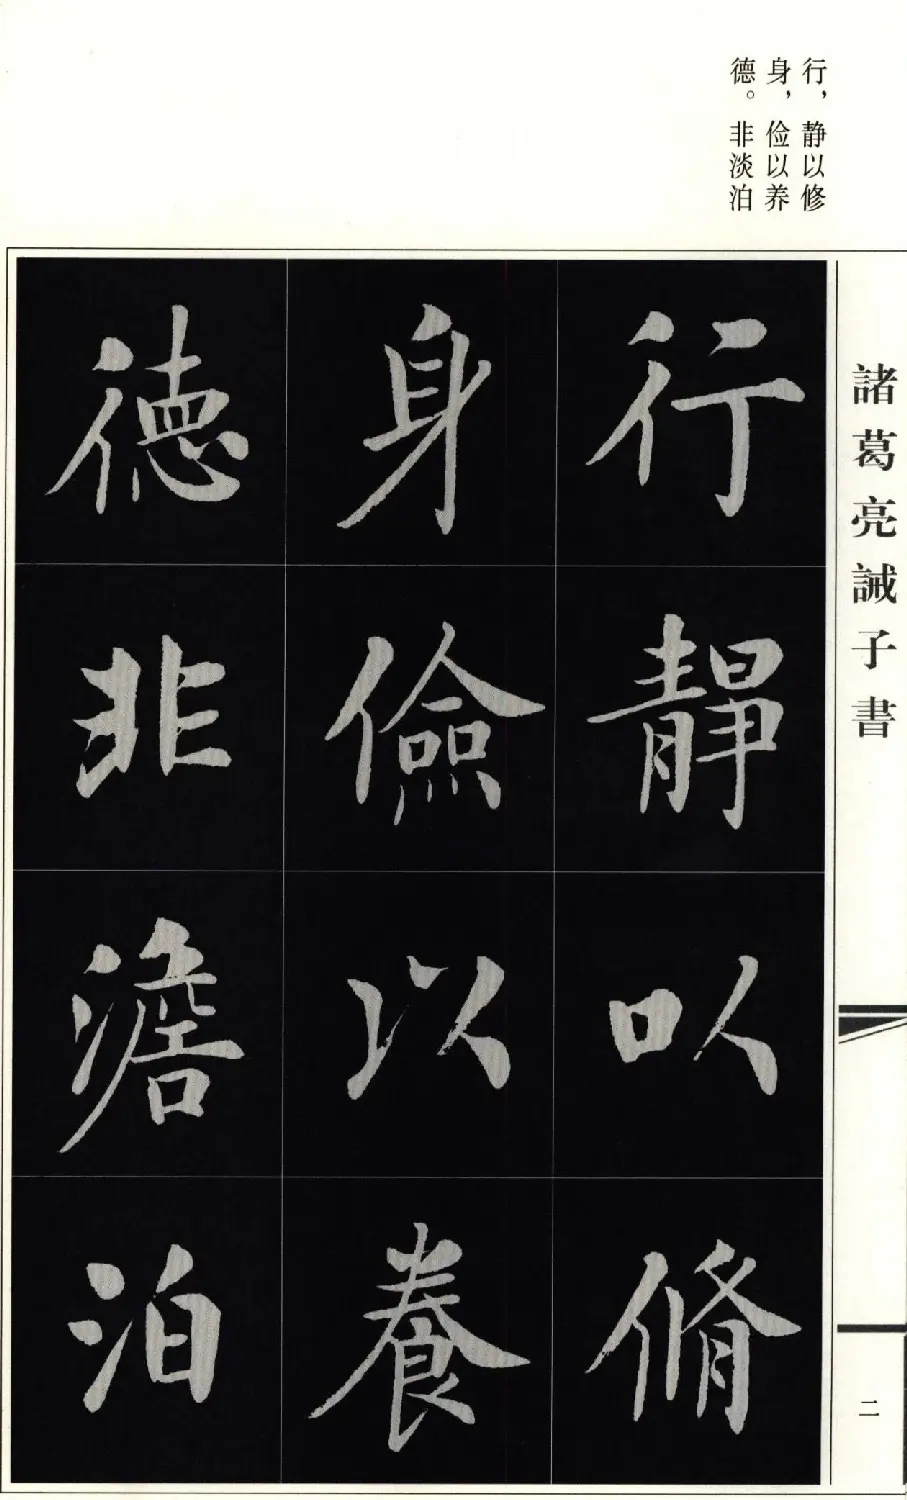 行，静以修
身，俭以养
德。非淡泊
諸葛亮誡子書
行靜以脩
身儉以養
德非澹泊
二